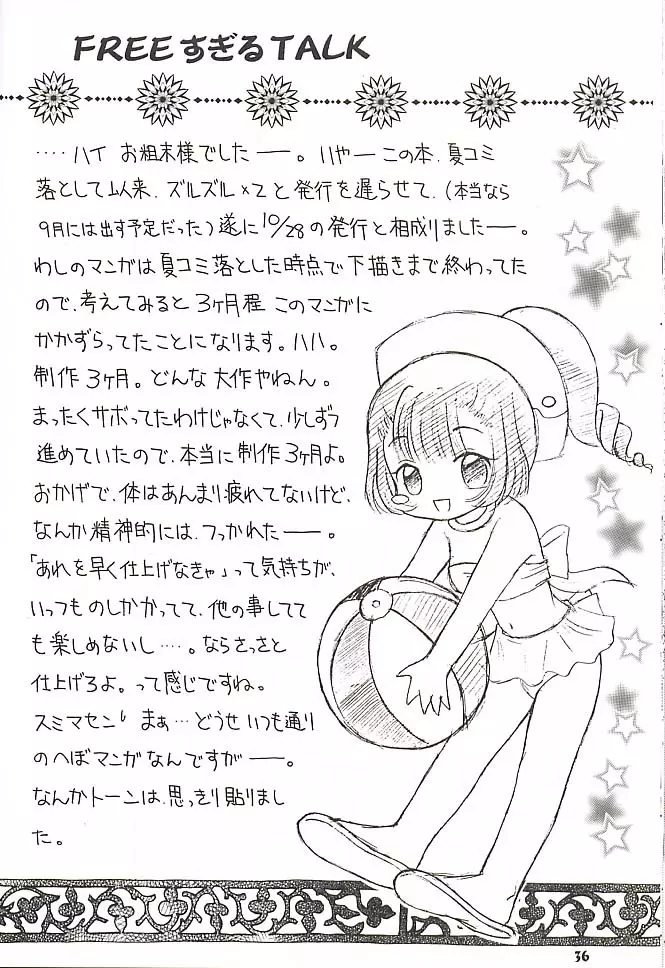 FREEすぎるTALK
‥‥ハイ お粗末様でしたー。いやーこの本、夏コミ
落として以来、ズルズル×2と発行を遅らせて、(本当なら
9月には出す予定だった)遂に10/28の発行と相成りましたー。
わしのマンガは夏コミ落とした時点で下描きまで終わってた
ので、考えてみると3ヶ月程このマンガに
かかずらってたことになります。ハハ。
制作3ヶ月。どんな大作やねん。
まったくサボってたわけじゃなくて、少しずつ
進めていたので、本当に制作3ヶ月よ。
おかげで、体はあんまり疲れてないけど、
なんか精神的には、つっかれたー。
「あれを早く仕上げなきゃ」って気持ちが、
いっつものしかかってて、他の事してて
も楽しめないし‥‥。ならさっさと
仕上げろよ。って感じですね。
スミマセン! まぁ…どうせいつも通り
のへぼマンガなんですがー。
なんかトーンは、思っきり貼りまし
た。
36